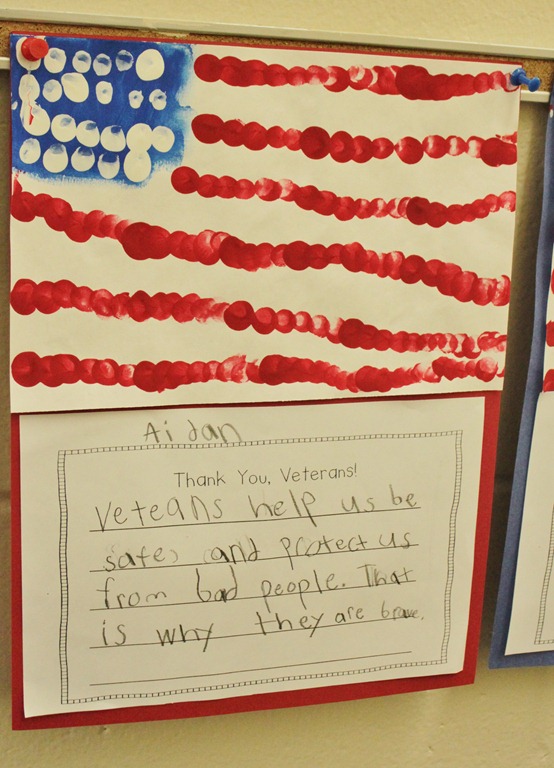 Aidan
Thank You, Veterans!
Veteans help us be
safe, and protect us
from bad people. That
is why they are brave.